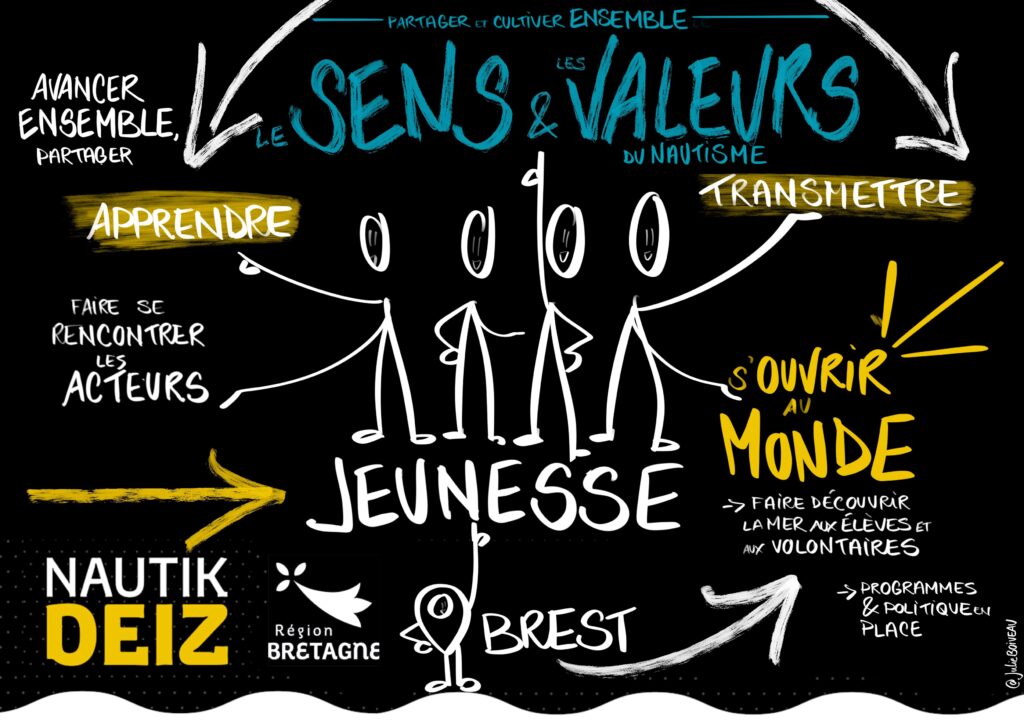 PARTAGER ET CULTIVER ENSEMBLE
LE SENS & LES VALEURS
DU NAUTISME
AVANCER
ENSEMBLE,
PARTAGER
APPRENDRE
TRANSMETTRE
FAIRE SE
RENCONTRER
LES
ACTEURS
S'OUVRIR
AU
MONDE
JEUNESSE
-> FAIRE DÉCOUVRIR
LA MER AUX ÉLÈVES ET
AUX VOLONTAIRES
-> PROGRAMMES
& POLITIQUE EN
PLACE
NAUTIK
DEIZ
Région
BRETAGNE
BREST
@Julie BOIVEAU